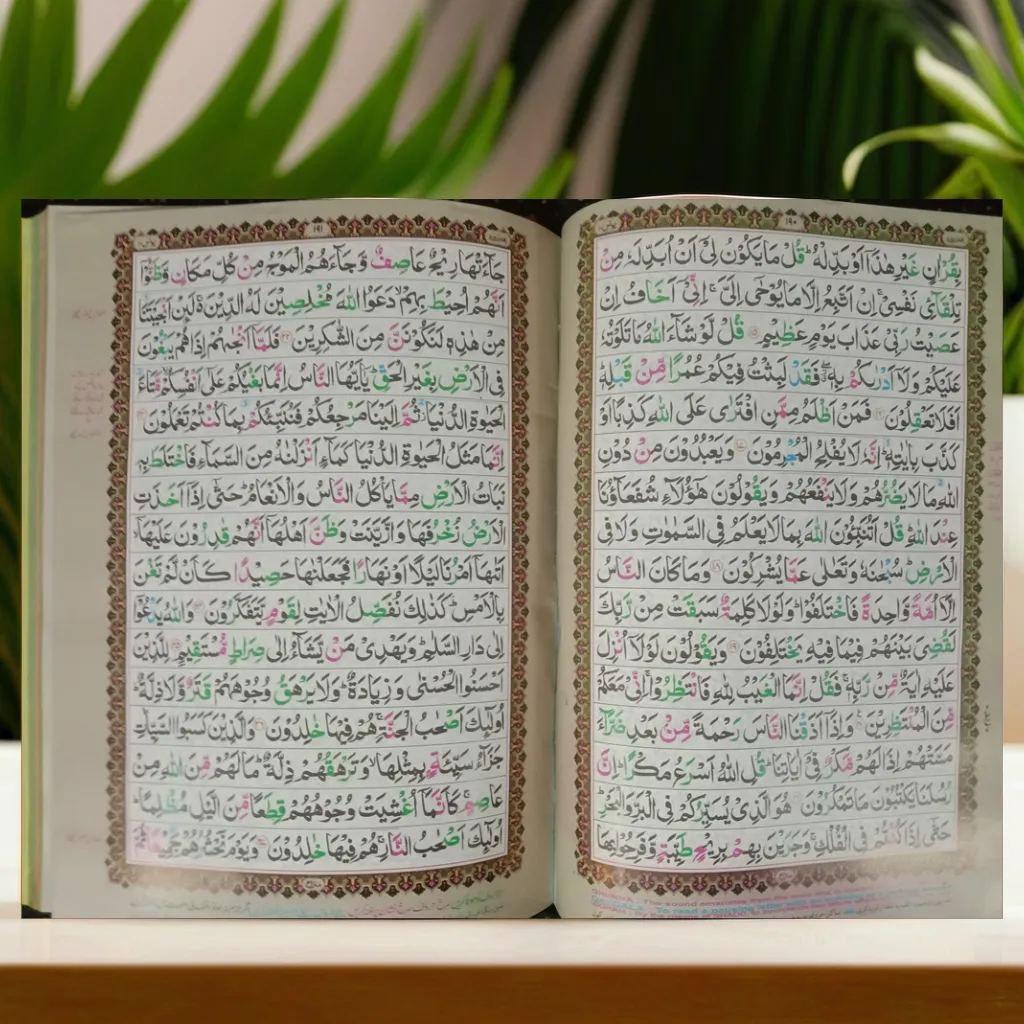 ١٩٠
بِقُرْاٰنٍ غَيْرِ هٰذَآ اَوْ بَدِّلْهُ ؕ قُلْ مَا يَكُوْنُ لِيْٓ اَنْ اُبَدِّلَهٗ مِنْ
تِلْقَآئِ نَفْسِيْ ۚ اِنْ اَتَّبِعُ اِلَّا مَا يُوْحٰٓى اِلَيَّ ۚ اِنِّيْٓ اَخَافُ اِنْ
عَصَيْتُ رَبِّيْ عَذَابَ يَوْمٍ عَظِيْمٍ ۝ قُلْ لَّوْ شَآءَ اللّٰهُ مَا تَلَوْتُهٗ
عَلَيْكُمْ وَلَآ اَدْرٰىكُمْ بِهٖ ۖ فَقَدْ لَبِثْتُ فِيْكُمْ عُمُرًا مِّنْ قَبْلِهٖ ؕ
اَفَلَا تَعْقِلُوْنَ ۝ فَمَنْ اَظْلَمُ مِمَّنِ افْتَرٰى عَلَى اللّٰهِ كَذِبًا اَوْ
كَذَّبَ بِاٰيٰتِهٖ ؕ اِنَّهٗ لَا يُفْلِحُ الْمُجْرِمُوْنَ ۝ وَيَعْبُدُوْنَ مِنْ دُوْنِ
اللّٰهِ مَا لَا يَضُرُّهُمْ وَلَا يَنْفَعُهُمْ وَيَقُوْلُوْنَ هٰٓؤُلَآءِ شُفَعَآؤُنَا
عِنْدَ اللّٰهِ ؕ قُلْ اَتُنَبِّئُوْنَ اللّٰهَ بِمَا لَا يَعْلَمُ فِي السَّمٰوٰتِ وَلَا فِي
الْاَرْضِ ؕ سُبْحٰنَهٗ وَتَعٰلٰى عَمَّا يُشْرِكُوْنَ ۝ وَمَا كَانَ النَّاسُ
اِلَّآ اُمَّةً وَّاحِدَةً فَاخْتَلَفُوْا ؕ وَلَوْلَا كَلِمَةٌ سَبَقَتْ مِنْ رَّبِّكَ
لَقُضِيَ بَيْنَهُمْ فِيْمَا فِيْهِ يَخْتَلِفُوْنَ ۝ وَيَقُوْلُوْنَ لَوْلَآ اُنْزِلَ
عَلَيْهِ اٰيَةٌ مِّنْ رَّبِّهٖ ۚ فَقُلْ اِنَّمَا الْغَيْبُ لِلّٰهِ فَانْتَظِرُوْا ۚ اِنِّيْ مَعَكُمْ
مِّنَ الْمُنْتَظِرِيْنَ ۝ وَاِذَآ اَذَقْنَا النَّاسَ رَحْمَةً مِّنْۢ بَعْدِ ضَرَّآءَ
مَسَّتْهُمْ اِذَا لَهُمْ مَّكْرٌ فِيْٓ اٰيَاتِنَا ؕ قُلِ اللّٰهُ اَسْرَعُ مَكْرًا ؕ اِنَّ
رُسُلَنَا يَكْتُبُوْنَ مَا تَمْكُرُوْنَ ۝ هُوَ الَّذِيْ يُسَيِّرُكُمْ فِي الْبَرِّ وَالْبَحْرِ ؕ
حَتّٰٓى اِذَا كُنْتُمْ فِي الْفُلْكِ ۚ وَجَرَيْنَ بِهِمْ بِرِيْحٍ طَيِّبَةٍ وَّفَرِحُوْا بِهَا
١٩١
جَآءَتْهَا رِيْحٌ عَاصِفٌ وَّجَآءَهُمُ الْمَوْجُ مِنْ كُلِّ مَكَانٍ وَّظَنُّوْٓا
اَنَّهُمْ اُحِيْطَ بِهِمْ ۙ دَعَوُا اللّٰهَ مُخْلِصِيْنَ لَهُ الدِّيْنَ ۚ لَئِنْ اَنْجَيْتَنَا
مِنْ هٰذِهٖ لَنَكُوْنَنَّ مِنَ الشّٰكِرِيْنَ ۝ فَلَمَّآ اَنْجٰىهُمْ اِذَا هُمْ يَبْغُوْنَ
فِي الْاَرْضِ بِغَيْرِ الْحَقِّ ؕ يٰٓاَيُّهَا النَّاسُ اِنَّمَا بَغْيُكُمْ عَلٰٓى اَنْفُسِكُمْ ۙ مَّتَاعَ
الْحَيٰوةِ الدُّنْيَا ۖ ثُمَّ اِلَيْنَا مَرْجِعُكُمْ فَنُنَبِّئُكُمْ بِمَا كُنْتُمْ تَعْمَلُوْنَ ۝
اِنَّمَا مَثَلُ الْحَيٰوةِ الدُّنْيَا كَمَآءٍ اَنْزَلْنٰهُ مِنَ السَّمَآءِ فَاخْتَلَطَ بِهٖ
نَبَاتُ الْاَرْضِ مِمَّا يَاْكُلُ النَّاسُ وَالْاَنْعَامُ ؕ حَتّٰٓى اِذَآ اَخَذَتِ
الْاَرْضُ زُخْرُفَهَا وَازَّيَّنَتْ وَظَنَّ اَهْلُهَآ اَنَّهُمْ قٰدِرُوْنَ عَلَيْهَآ ۙ
اَتٰىهَآ اَمْرُنَا لَيْلًا اَوْ نَهَارًا فَجَعَلْنٰهَا حَصِيْدًا كَاَنْ لَّمْ تَغْنَ
بِالْاَمْسِ ؕ كَذٰلِكَ نُفَصِّلُ الْاٰيٰتِ لِقَوْمٍ يَّتَفَكَّرُوْنَ ۝ وَاللّٰهُ يَدْعُوْٓا
اِلٰى دَارِ السَّلٰمِ ؕ وَيَهْدِيْ مَنْ يَّشَآءُ اِلٰى صِرَاطٍ مُّسْتَقِيْمٍ ۝ لِلَّذِيْنَ
اَحْسَنُوا الْحُسْنٰى وَزِيَادَةٌ ؕ وَلَا يَرْهَقُ وُجُوْهَهُمْ قَتَرٌ وَّلَا ذِلَّةٌ ؕ
اُولٰٓئِكَ اَصْحٰبُ الْجَنَّةِ ۚ هُمْ فِيْهَا خٰلِدُوْنَ ۝ وَالَّذِيْنَ كَسَبُوا السَّيِّاٰتِ
جَزَآءُ سَيِّئَةٍۭ بِمِثْلِهَا ۙ وَتَرْهَقُهُمْ ذِلَّةٌ ؕ مَا لَهُمْ مِّنَ اللّٰهِ مِنْ
عَاصِمٍ ۚ كَاَنَّمَآ اُغْشِيَتْ وُجُوْهُهُمْ قِطَعًا مِّنَ الَّيْلِ مُظْلِمًا ؕ
اُولٰٓئِكَ اَصْحٰبُ النَّارِ ۚ هُمْ فِيْهَا خٰلِدُوْنَ ۝ وَيَوْمَ نَحْشُرُهُمْ جَمِيْعًا